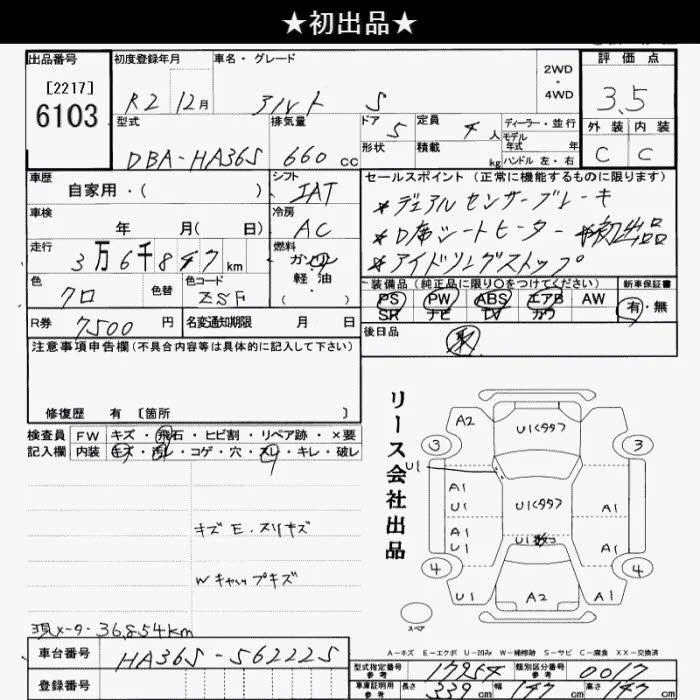 ★初出品★
出品番号
[2217]
6103
初度登録年月
R2 12月
車名・グレード
アルト S
2WD
・
4WD
評価点
3.5
外装 内装
C C
型式
DBA-HA36S
排気量
660 cc
ドア
5
定員
4 人
形状
積載
kg
ディーラー・並行
モデル
年式 年
ハンドル 左・右
車歴
自家用・( )
シフト
IAT
車検
年 月( 日)
冷房
AC
走行
3万6千847km
燃料
ガソリン
軽油
・
( )
色
クロ
色替
色コード
ZSF
R券
7500 円
名変通知期限 月 日
セールスポイント(正常に機能するものに限ります)
*デュアルセンサーブレーキ
*D席シートヒーター *初出品
*アイドリングストップ
装備品(純正品に限り○をつけてください)
PS PW ABS エアB AW
SR ナビ TV カワ
新車保証書
有・無
後日品
取
注意事項申告欄(不具合内容等は具体的に記入して下さい)
修復歴 有 〔箇所 〕
検査員 FW キズ・飛石・ヒビ割・リペア跡・×要
記入欄 内装 キズ・汚レ・コゲ・穴・スレ・キレ・破レ
キズ E.スリキズ
Wキャップキズ
現メーター 36,854km
車台番号
HA36S-562225
登録番号
リース会社出品
A2
U1<99>
3
3
U1
A1
U1
U1<99>
A1
A1
U1
U1数コ
A1
4
4
U1
A2
A1
スペア
A-キズ E-エクボ U-凹み W-補修跡 S-サビ C-腐食 XX-交換済
型式指定番号
参考
17954
類別区分番号
参考
0017
車庫証明用
参考
長さ 339 cm 幅 147 cm 高さ 147 cm